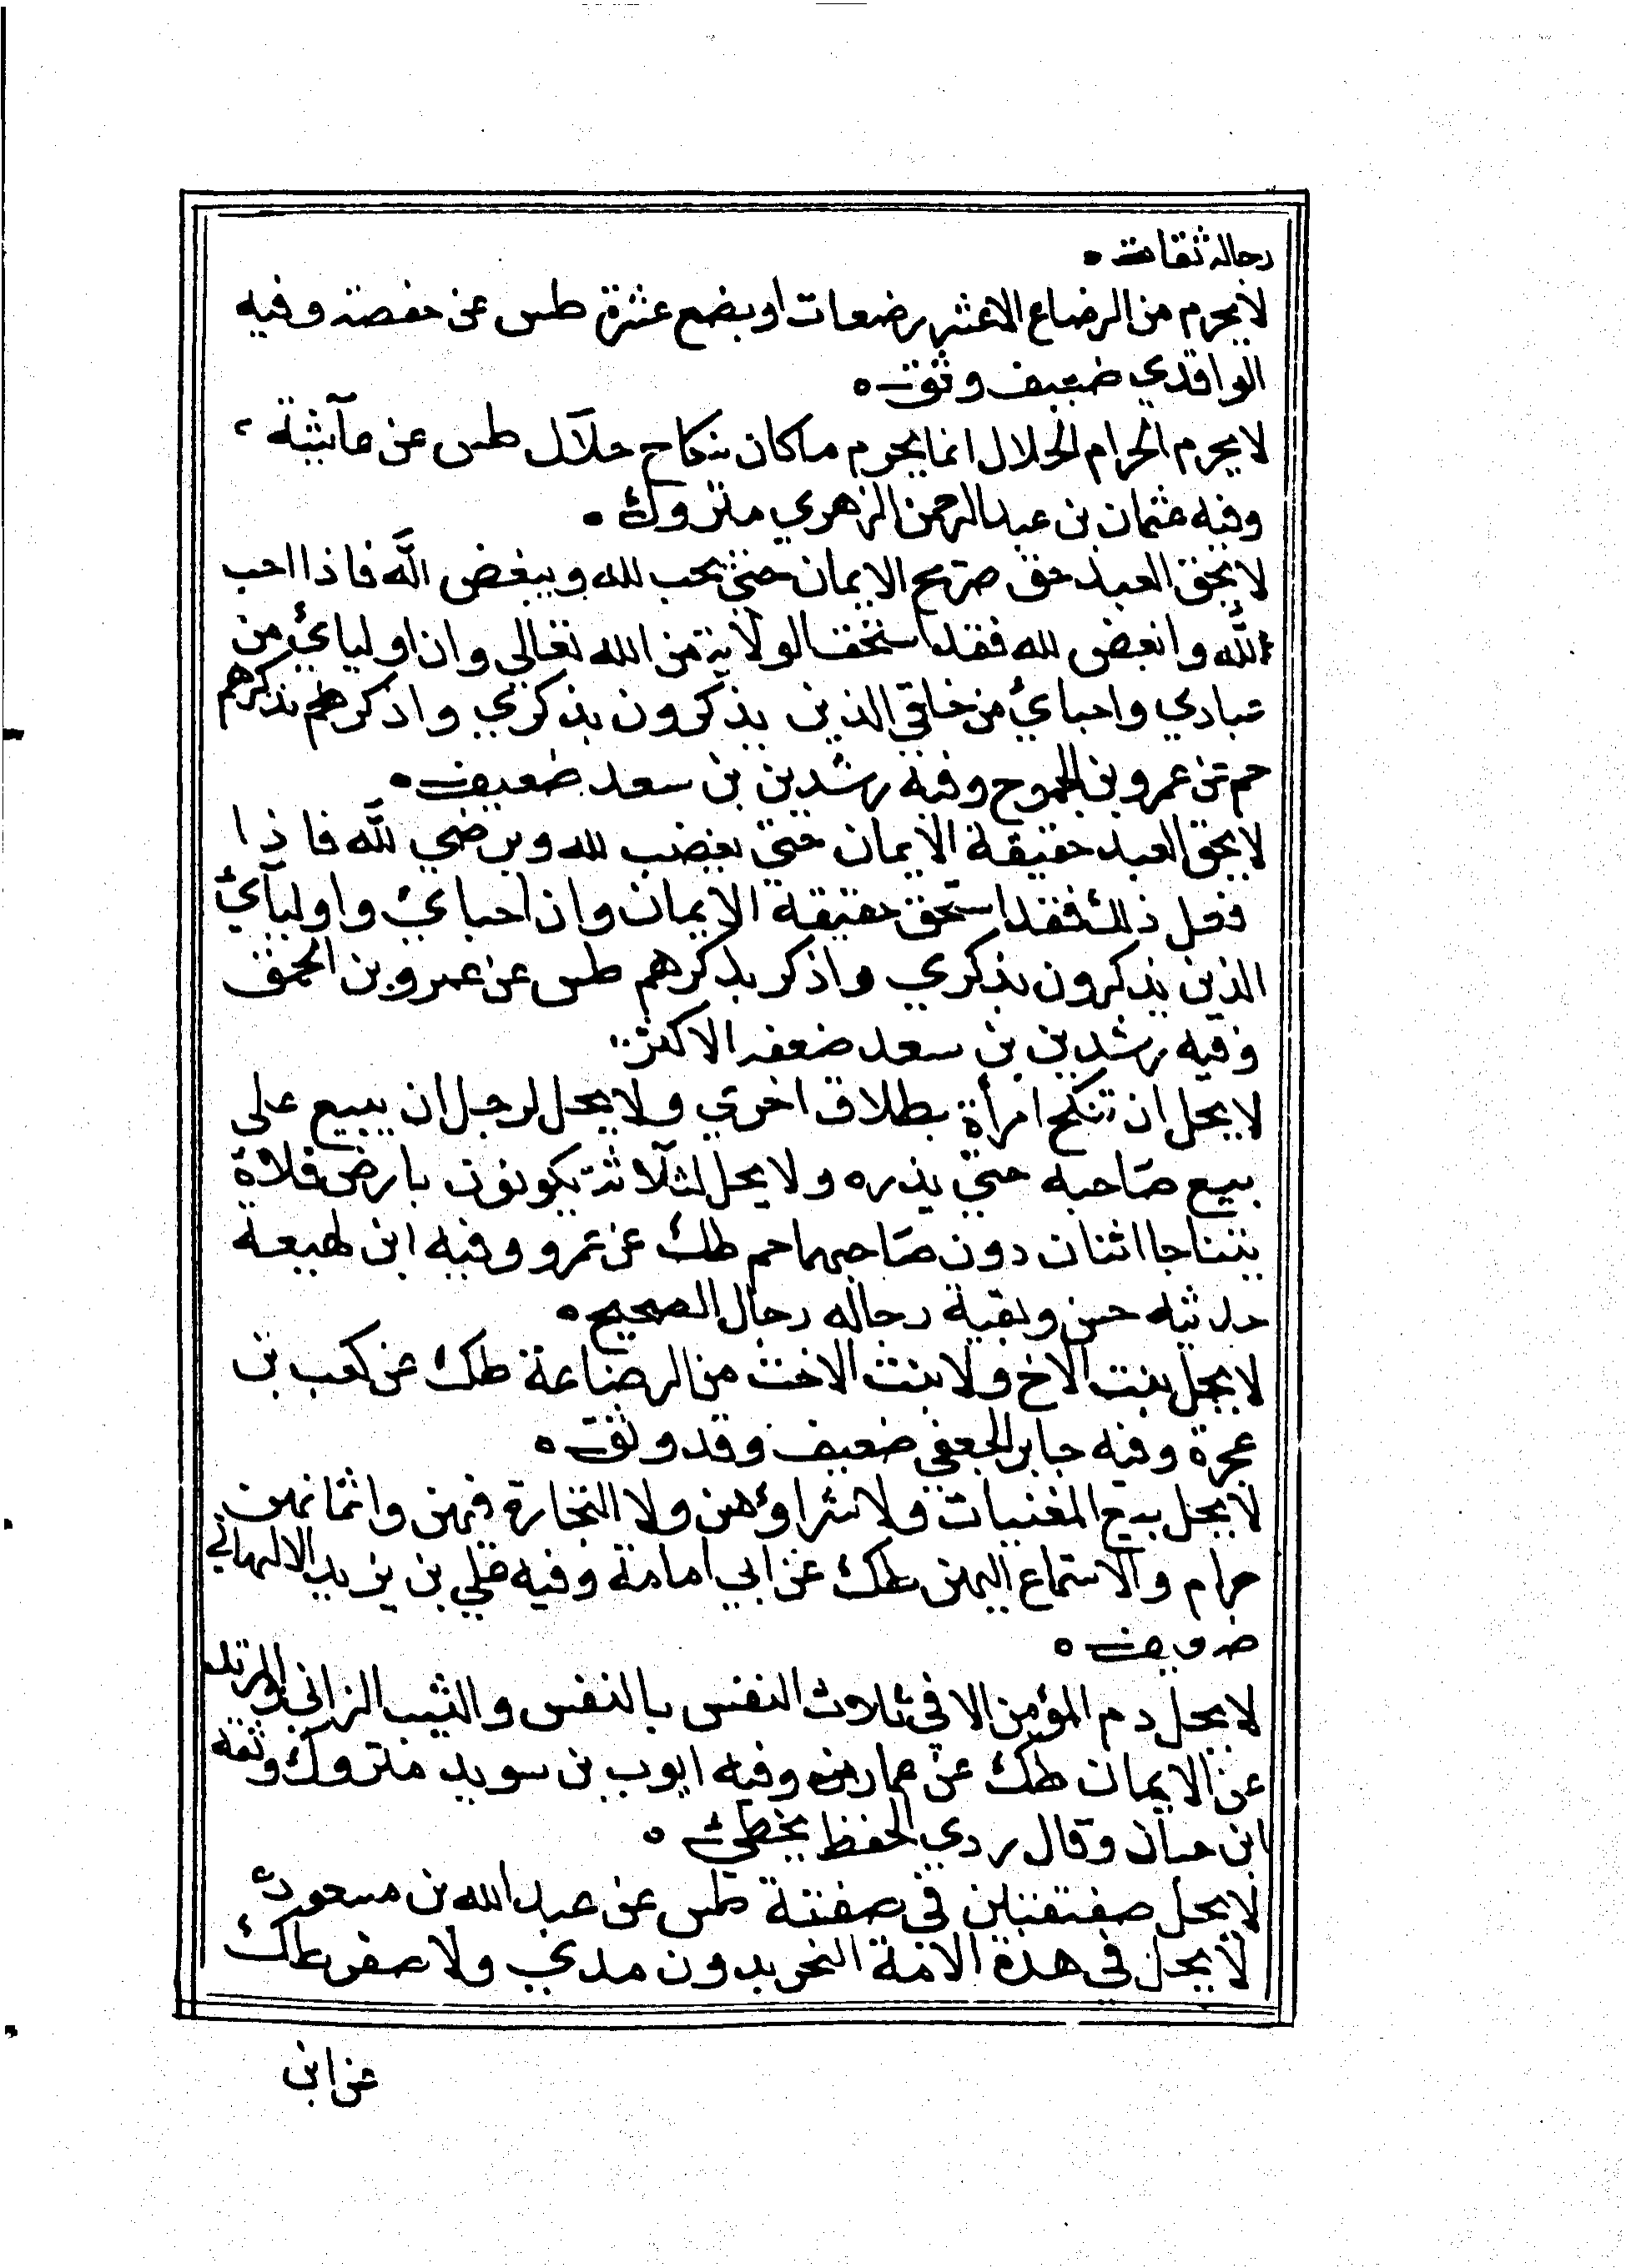 رجاله ثقات ه
لا يحرم من الرضاع الا عشر رضعات او بضع عشرة طس عن حفصة وفيه
الواقدي ضعيف وثق ه
لا يحرم الحرام الحلال انما يحرم ما كان بنكاح حلال طس عن عآئشة
وفيه عثمان بن عبد الرحمن الزهري متروك ه
لا يحق العبد حق صريح الايمان حتى يحب لله ويبغض لله فاذا احب
لله وابغض لله فقد استحق الولاية من الله تعالى وان اوليائ من
عبادي واحبائ من خلقي الذين يذكرون بذكري واذكرهم بذكرهم
حم عن عمرو بن الجموح وفيه رشدين بن سعد ضعيف ه
لا يحق العبد حقيقة الايمان حتى يغضب لله ويرضي لله فاذا
فعل ذلك فقد استحق حقيقة الايمان وان احبائ واوليآئ
الذين يذكرون بذكري واذكر بذكرهم طس عن عمرو بن الحمق
وفيه رشدين بن سعد ضعفه الاكثر
لا يحل ان تنكح امرأة بطلاق اخرى ولا يحل لرجل ان يبيع على
بيع صاحبه حتى يذره ولا يحل لثلاثة يكونون بارض فلاة
يتناجا اثنان دون صاحبهما حم طك عن عمرو وفيه ابن لهيعة
حديثه حسن وبقية رجاله رجال الصحيح ه
لا يحل بنت الاخ ولا بنت الاخت من الرضاعة طك عن كعب بن
عجرة وفيه جابر الجعفي ضعيف وقد وثق ه
لا يحل بيع المغنيات ولا شراؤهن ولا التجارة فيهن واثمانهن
حرام والاستماع اليهن طك عن ابي امامة وفيه علي بن يزيد الالهاني
ضعيف ه
لا يحل دم المؤمن الا في ثلاث النفس بالنفس والثيب الزاني والمرتد
عن الايمان طك عن عمار وفيه ايوب بن سويد متروك وثقه
ابن حبان وقال ردي الحفظ يخطئ ه
لا يحل صفقتين في صفقة طس عن عبد الله بن مسعود ه
لا يحل في هذه الامة التجريد ون مدي ولا صفر طك
عن ابن